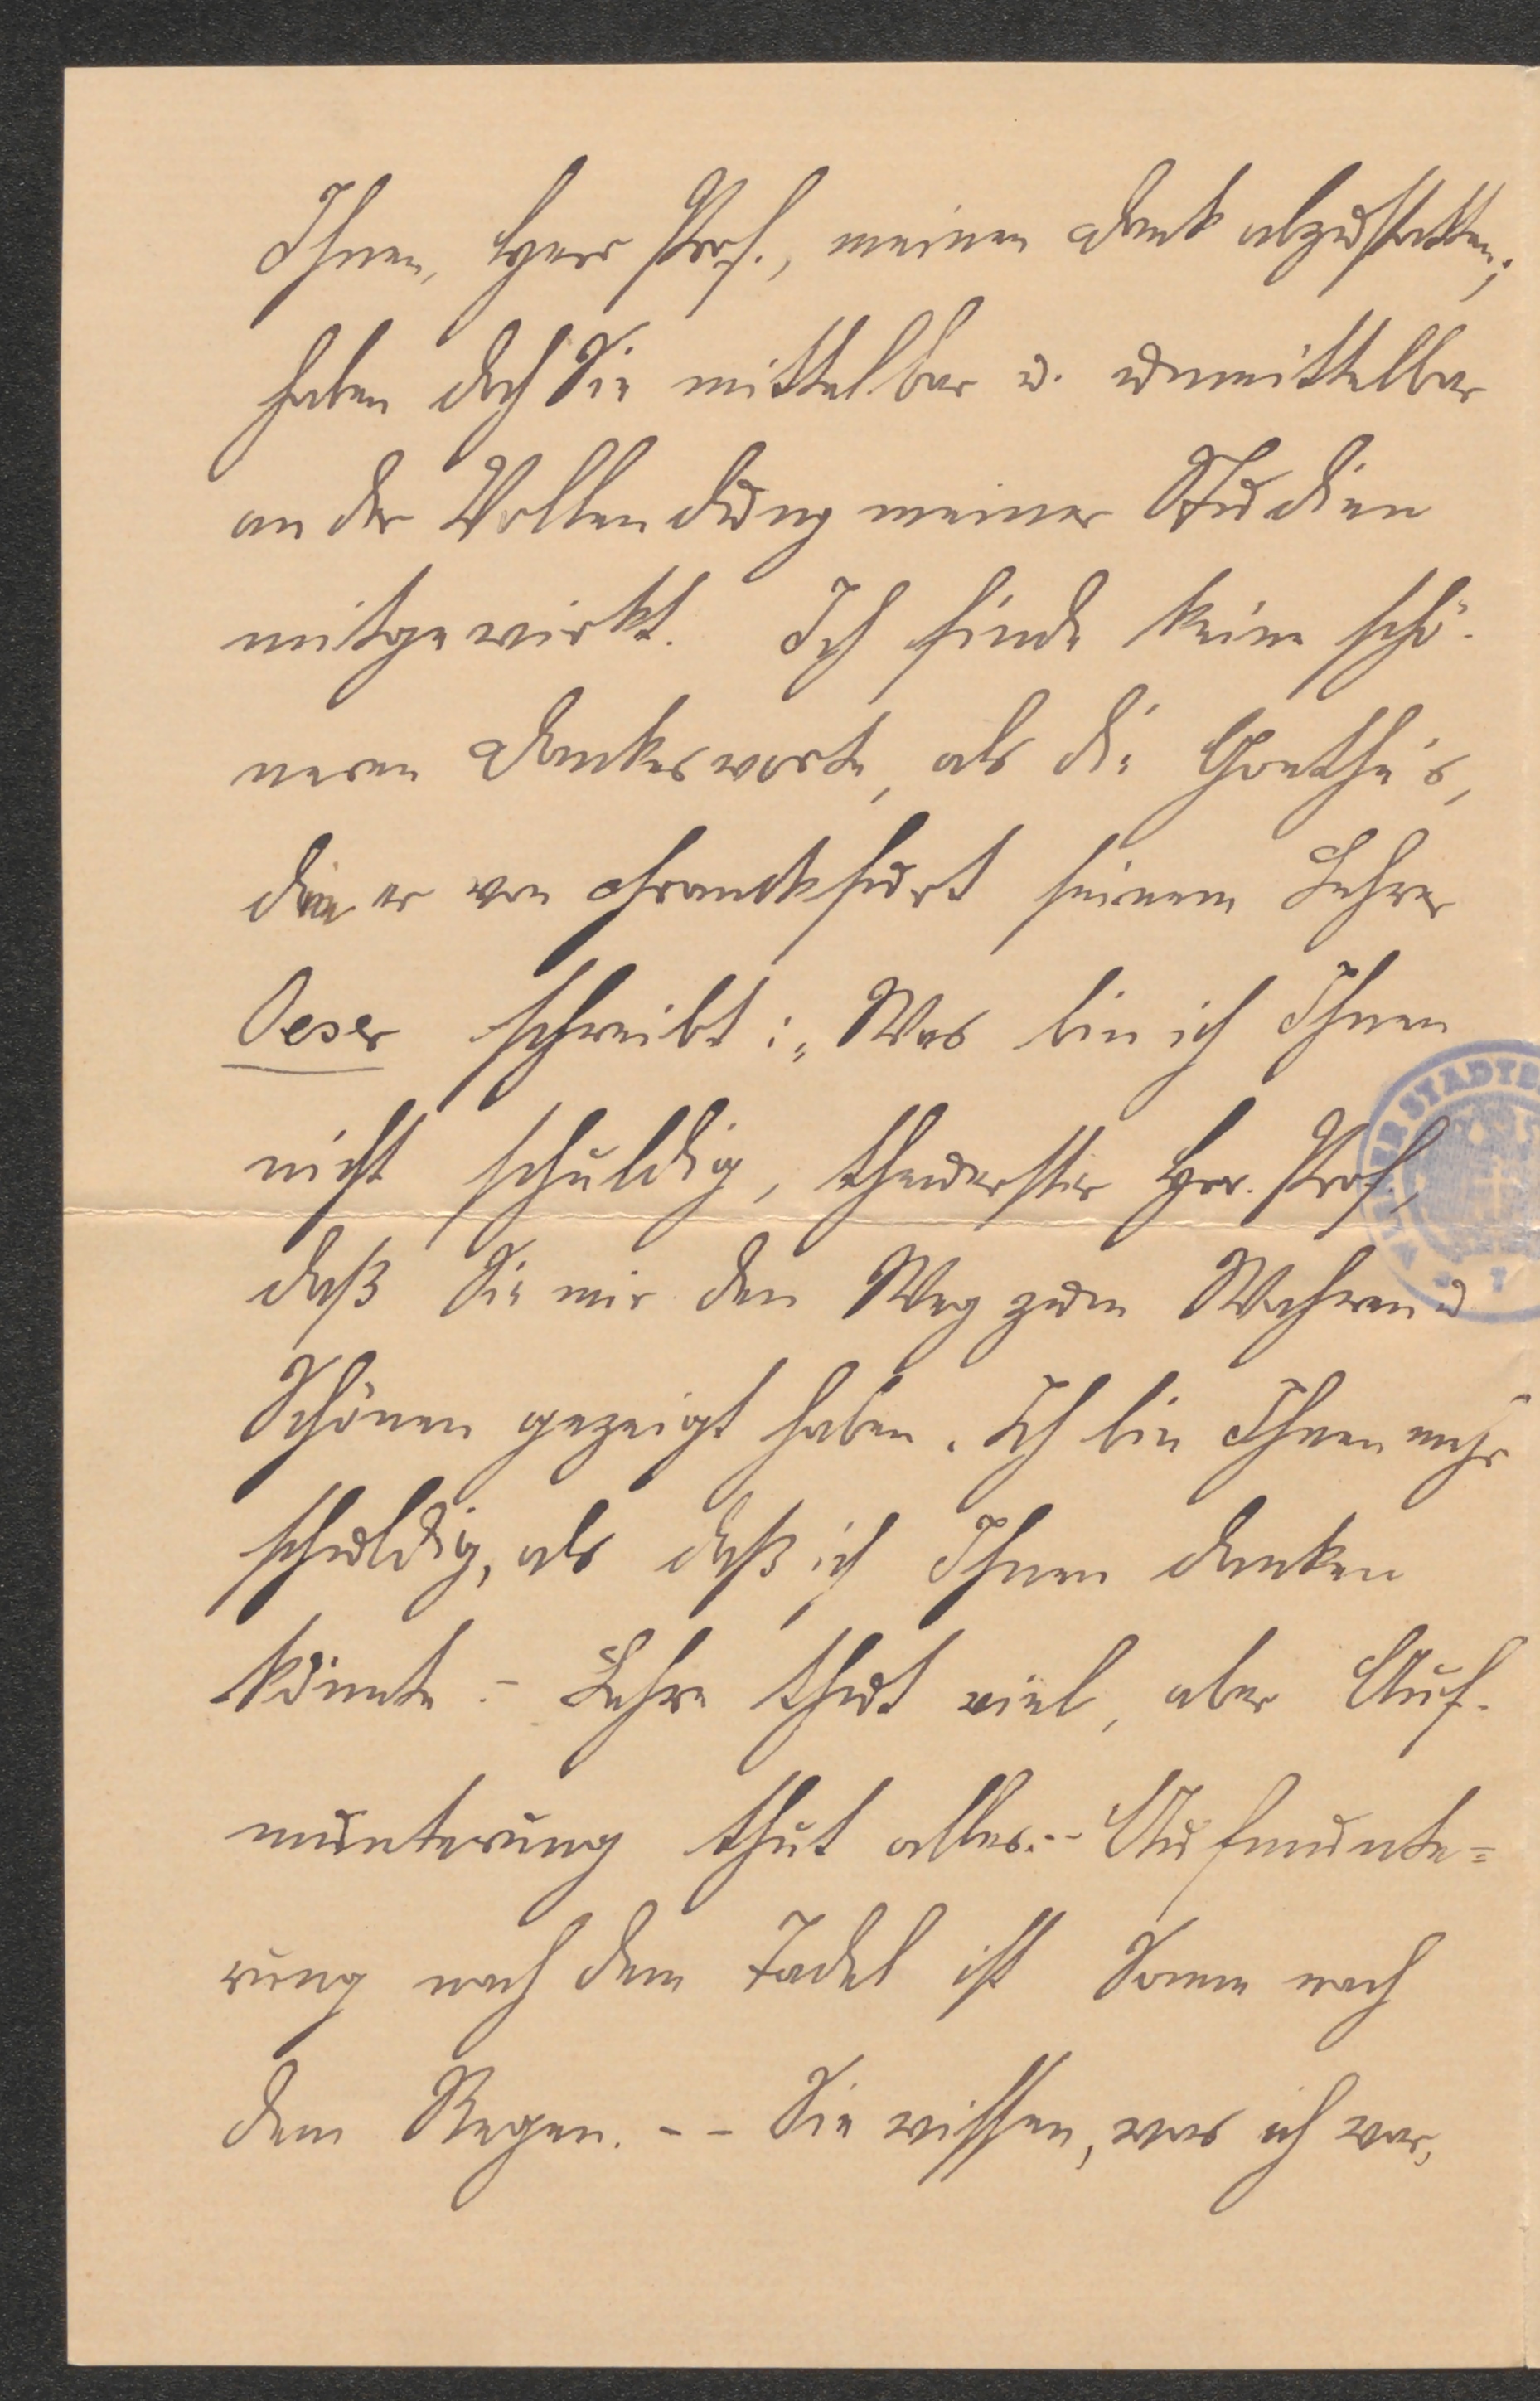 Ihnen, Herr Prof., meinen Dank abzustatten;
haben doch Sie mittelbar u. unmittelbar
an der Vollendung meiner Studien
mitgewirkt. Ich finde keine schö-
neren Dankesworte, als die Goethe's,
die er von Franckfurt seinem Lehrer
Oeser schreibt: „Was bin ich Ihnen
nicht schuldig, theuerster Hr. Prof.,
daß Sie mir den Weg zum Wahren u
Schönen gezeigt haben. Ich bin Ihnen mehr
schuldig, als daß ich Ihnen danken
könnte. - Lehre thut viel, aber Auf-
munterung thut alles. -- Aufmunte=
rung nach dem Tadel ist Sonne nach
dem Regen. -- Sie wissen, was ich war,